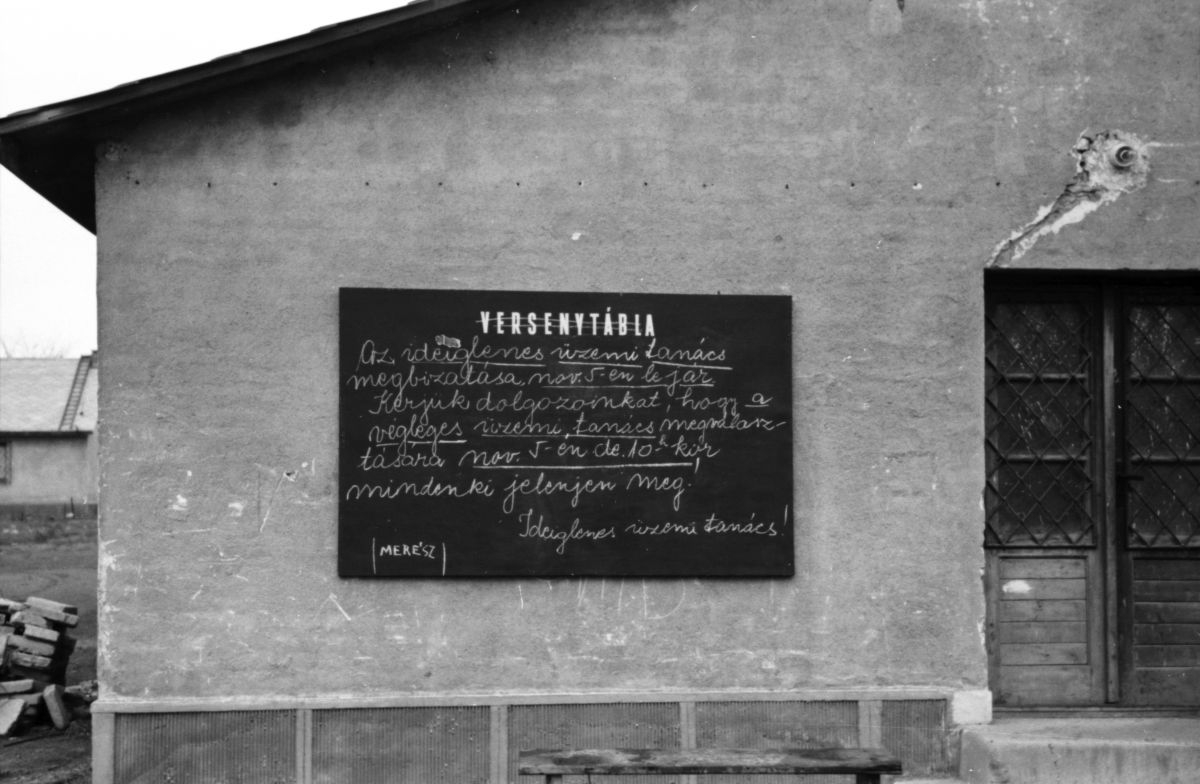 VERSENYTÁBLA
Az ideiglenes üzemi tanács
megbizatása nov. 5-én lejár
Kérjük dolgozóinkat, hogy a
végleges üzemi tanács megválasz-
tására nov. 5-én de. 10h-kor
mindenki jelenjen meg!
Ideiglenes üzemi tanács!
MERÉSZ